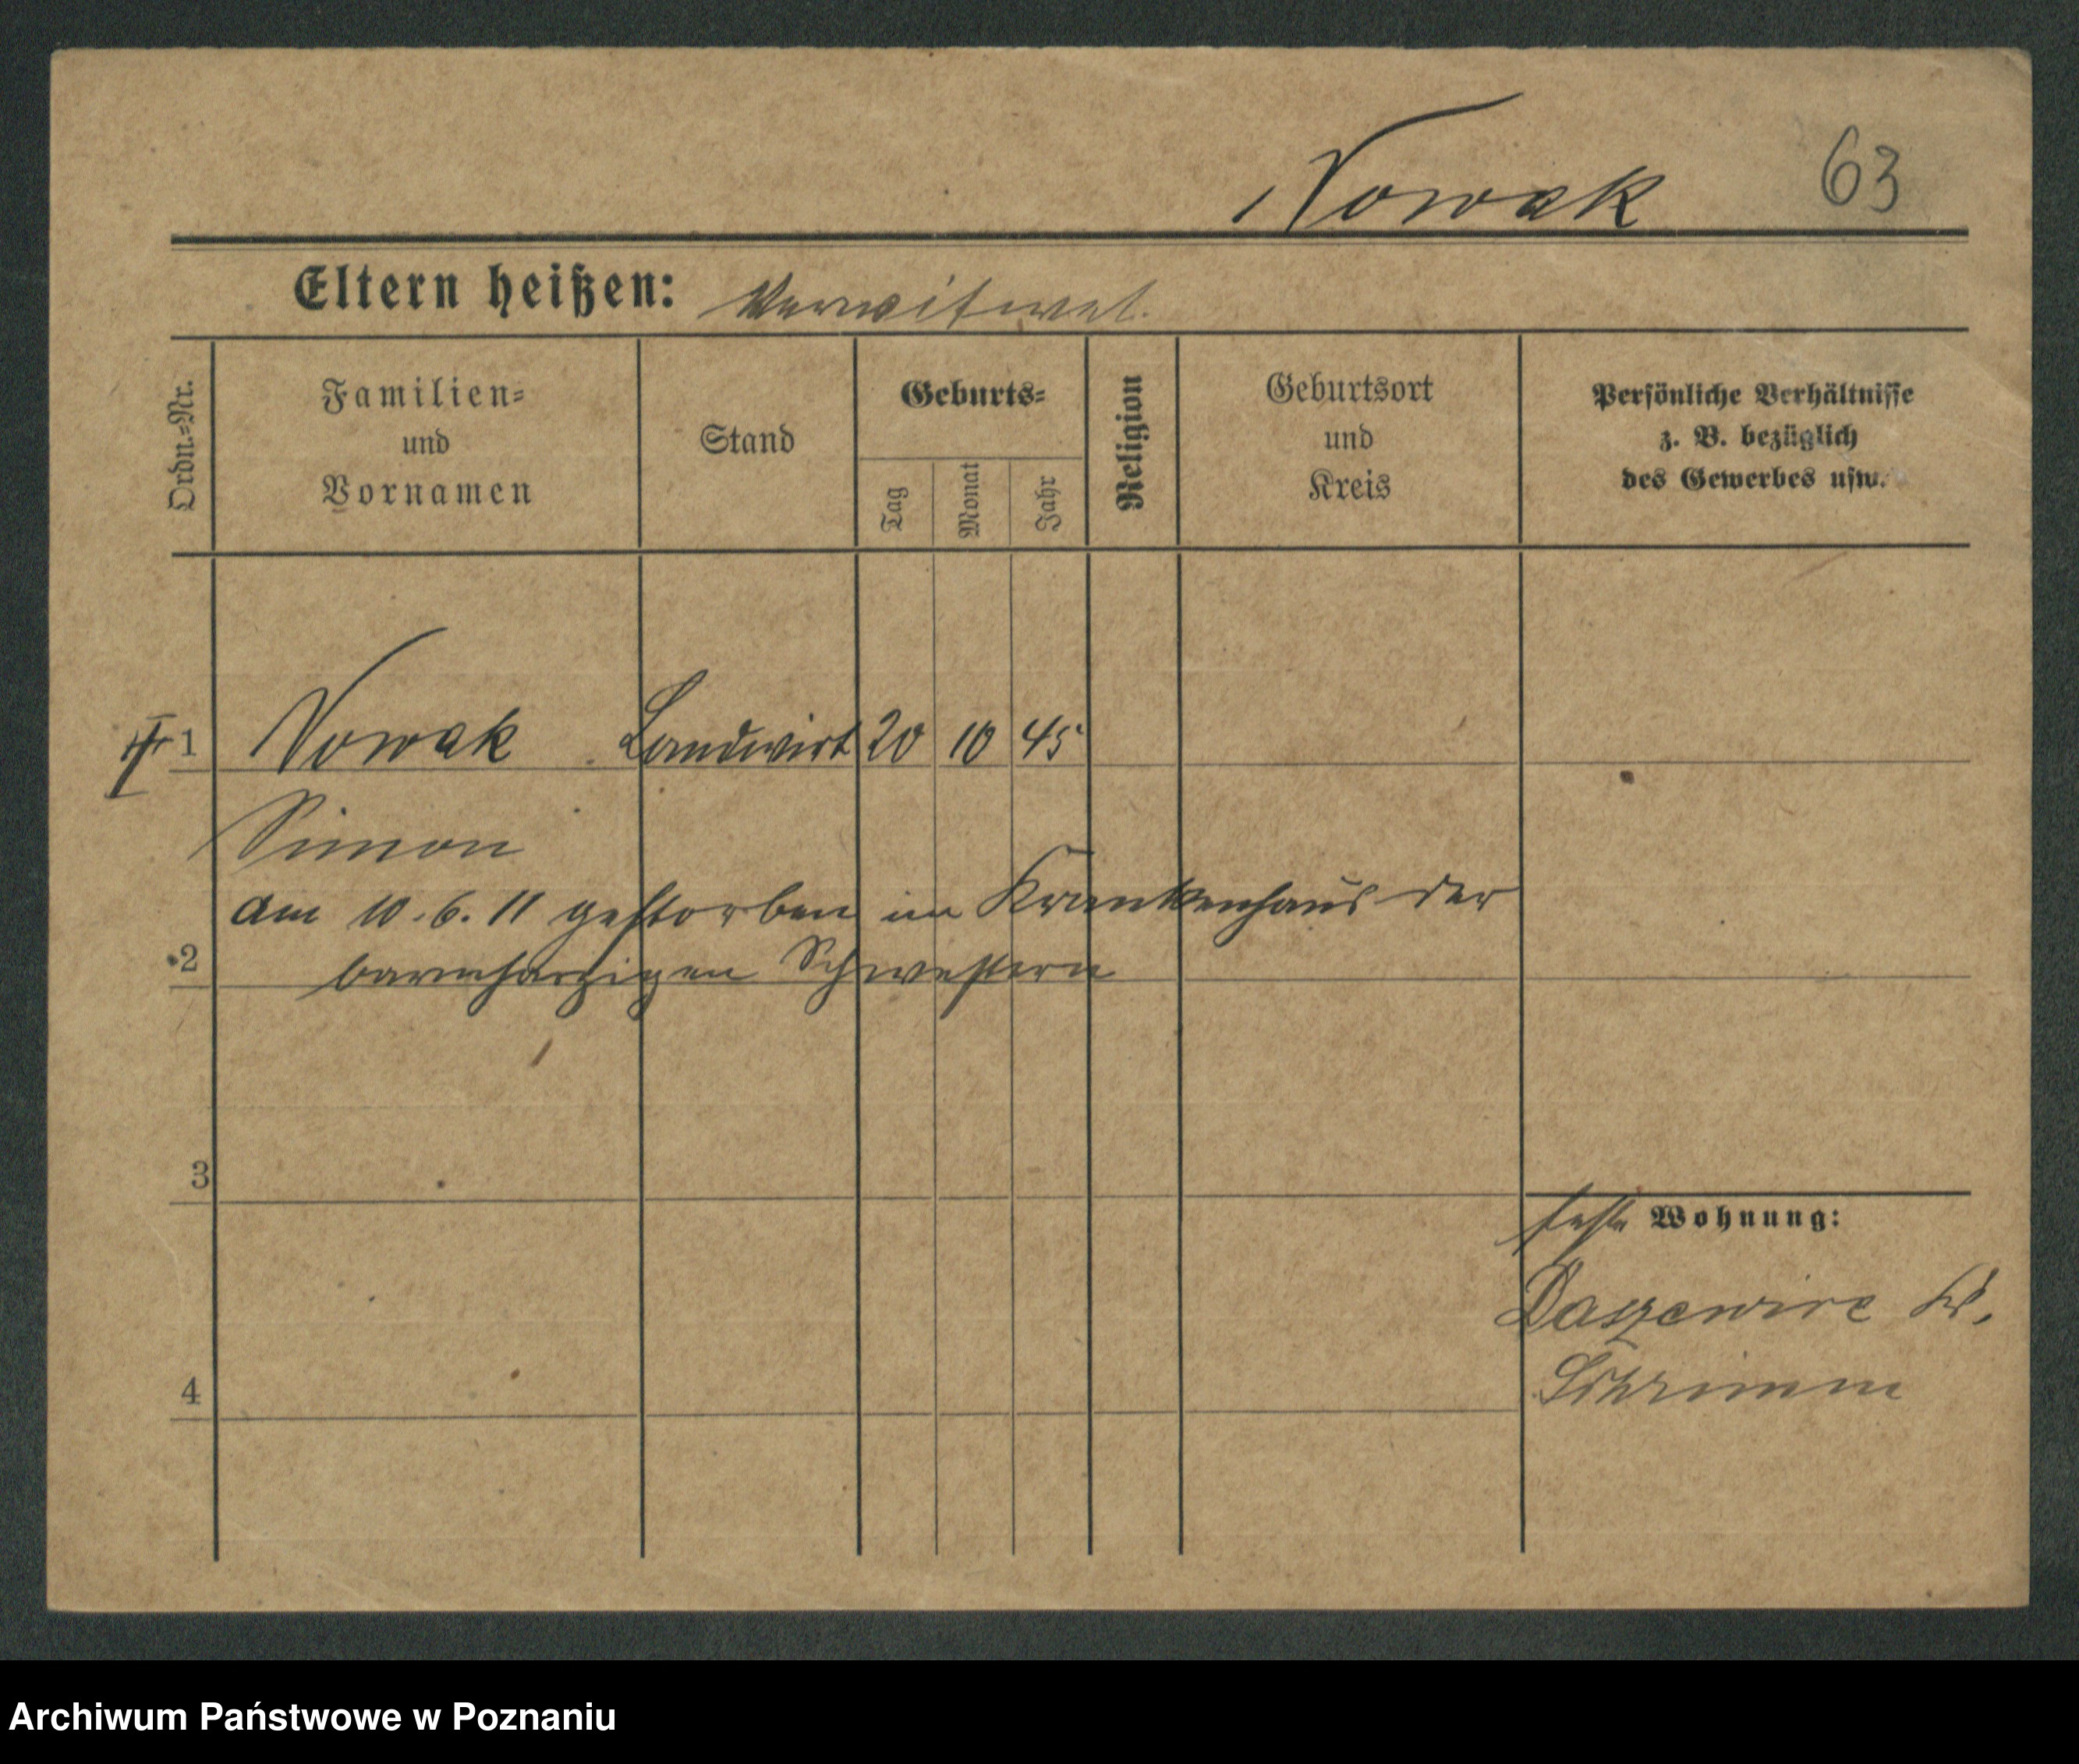 Nowak 63
Eltern heißen: Verwitwet.
Ordn.=Nr.
Familien=
und
Vornamen
Stand
Geburts=
Tag
Monat
Jahr
Religion
Geburtsort
und
Kreis
Persönliche Verhältnisse
z. B. bezüglich
des Gewerbes usw.
1 Nowak Landwirt 20 10 45
Simon
am 10.6.11 gestorben im Krankenhaus der
2 barmherzigen Schwestern
3
feste Wohnung:
Daszewice Kr.
Schrimm
4
Archiwum Państwowe w Poznaniu